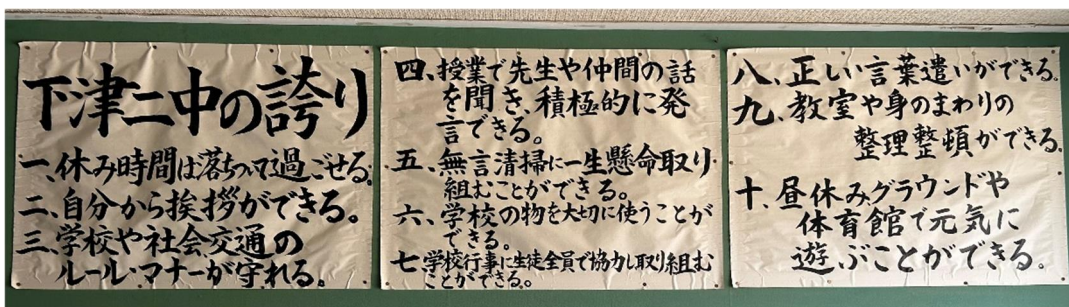 下津二中の誇り
一、休み時間は落ちついて過ごせる。
二、自分から挨拶ができる。
三、学校や社会、交通の
ルール・マナーが守れる。
四、授業で先生や仲間の話
を聞き、積極的に発
言できる。
五、無言清掃に一生懸命取り
組むことができる。
六、学校の物を大切に使うことが
できる。
七、学校行事に生徒全員で協力し取り組む
ことができる。
八、正しい言葉遣いができる。
九、教室や身のまわりの
整理整頓ができる。
十、昼休みグラウンドや
体育館で元気に
遊ぶことができる。